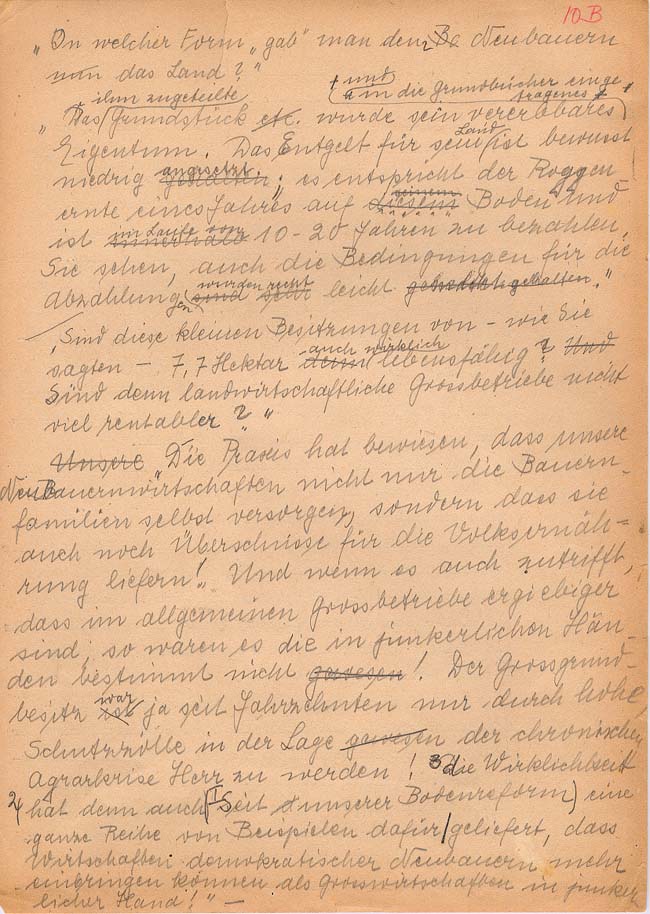 10 B
„In welcher Form „gab" man den Neubauern
nun das Land?"
ihm zugeteilte + und
a in die Grundbücher einge
tragenes +
„Das Grundstück etc. wurde sein vererbbares
Land
Eigentum. Das Entgelt für sein ist bewusst
angesetzt
niedrig gehalten; es entspricht der Roggen
seinem
ernte eines Jahres auf diesem Boden und
im Laufe von
ist innerhalb 10-20 Jahren zu bezahlen.
Sie sehen, auch die Bedingungen für die
wurden recht
Abzahlungen sind sehr leicht gehalten."
„Sind diese kleinen Besitzungen von – wie Sie
auch wirklich
sagten – 7,7 Hektar denn lebensfähig? Und
Sind denn landwirtschaftliche Grossbetriebe nicht
viel rentabler?"
Unsere Die Praxis hat bewiesen, dass unsere
Neubauernwirtschaften nicht nur die Bauern-
familien selbst versorgen, sondern dass sie
auch noch Überschüsse für die Volksernäh=
rung liefern! Und wenn es auch zutrifft,
dass im allgemeinen Grossbetriebe ergiebiger
sind, so waren es die in junkerlichen Hän-
den bestimmt nicht gewesen! Der Grossgrund-
war
besitz ist ja seit Jahrzehnten nur durch hohe
Schutzzölle in der Lage gewesen der chronischen
Agrarkrise Herr zu werden! 3 die Wirklichkeit
2 hat denn auch (1 Seit unserer Bodenreform) eine
ganze Reihe von Beispielen dafür geliefert, dass
Wirtschaften demokratischer Neubauern mehr
einbringen können als Grosswirtschaften in junker
licher Hand!" –